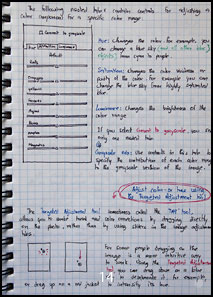 The following nested tabs contain controls for adjusting a
color component for a specific color range.
Convert to grayscale
Hue Saturation Luminance
Default
Reds
Oranges
Yellows
Greens
Aquas
Blues
Purples
Magentas
Hue: Changes the color. For example, you can
change a blue sky (and all other blue
objects) from cyan to purple.
Saturation: Changes the color vividness or
purity of the color. For example you can
change the blue sky from highly saturated
blue.
Luminance: Changes the brightness of the
color range.
If you select Convert to grayscale, you see
only one nested tab:
Grayscale Mix: Use controls in this tab to
specify the contribution of each color range
to the grayscale version of the image.
Adjust color or tone using
the Targeted Adjustment tool
The Targeted Adjustment tool sometimes called the "TAT" tool,
allows you to make tonal and color corrections by dragging directly
on the photo, rather than by using sliders in the image adjustment
tabs.
For some people dragging on the
image is a more intuitive way
to work. Using the Targeted Adjustment
you can drag down on a blue
sky to desaturate it, for example,
or drag up on a red jacket to intensify its hue.
14